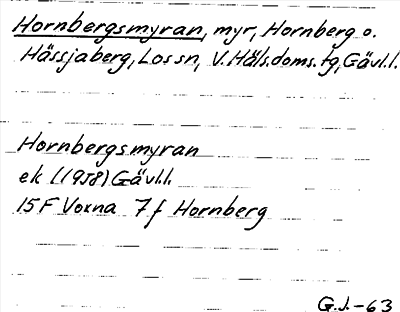 Hornbergsmyran, myr, Hornberg o.
Hässjaberg, Los sn, V. Häls. doms. tg, Gävl. l.
Hornbergsmyran
ek (1958) Gävl. l.
15 F Voxna 7 f Hornberg
G.J.-63